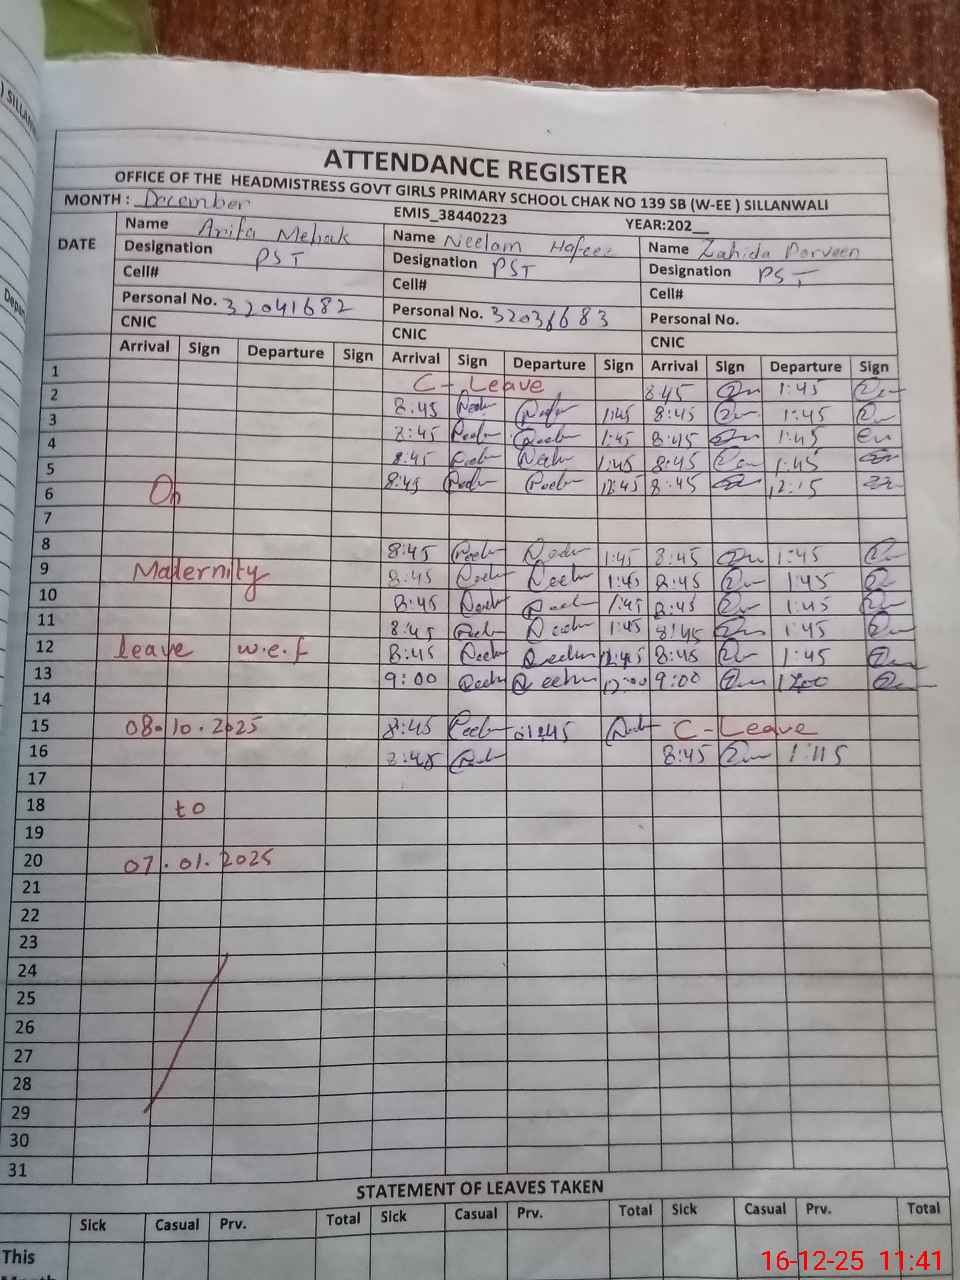 ) SILLANW
Depar
ATTENDANCE REGISTER
OFFICE OF THE HEADMISTRESS GOVT GIRLS PRIMARY SCHOOL CHAK NO 139 SB (W-EE ) SILLANWALI
MONTH : December EMIS_38440223 YEAR:202__
DATE Name Anita Mehak Name Neelam Hafeez Name Zahida Parveen
Designation PST Designation PST Designation PST
Cell# Cell# Cell#
Personal No. 32041682 Personal No. 32036683 Personal No.
CNIC CNIC CNIC
Arrival Sign Departure Sign Arrival Sign Departure Sign Arrival Sign Departure Sign
1 C-Leave 8:45 1:45
2 8:45 1:45 8:45 1:45
3 8:45 1:45 8:45 1:45
4 8:45 1:45 8:45 1:45
5 8:45 12:45 8:45 12:15
6 On
7
8 8:45 1:45 8:45 1:45
9 Maternity 8:45 1:45 8:45 1:45
10 8:45 1:45 8:45 1:45
11 8:45 1:45 8:45 1:45
12 leave w.e.f 8:45 12:45 8:45 1:45
13 9:00 12:00 9:00 1200
14
15 08-10.2025 8:45 01:45 C-Leave
16 8:45 8:45 1:15
17
18 to
19
20 07.01.2025
21
22
23
24
25
26
27
28
29
30
31
STATEMENT OF LEAVES TAKEN
Sick Casual Prv. Total Sick Casual Prv. Total Sick Casual Prv. Total
This
16-12-25 11:41